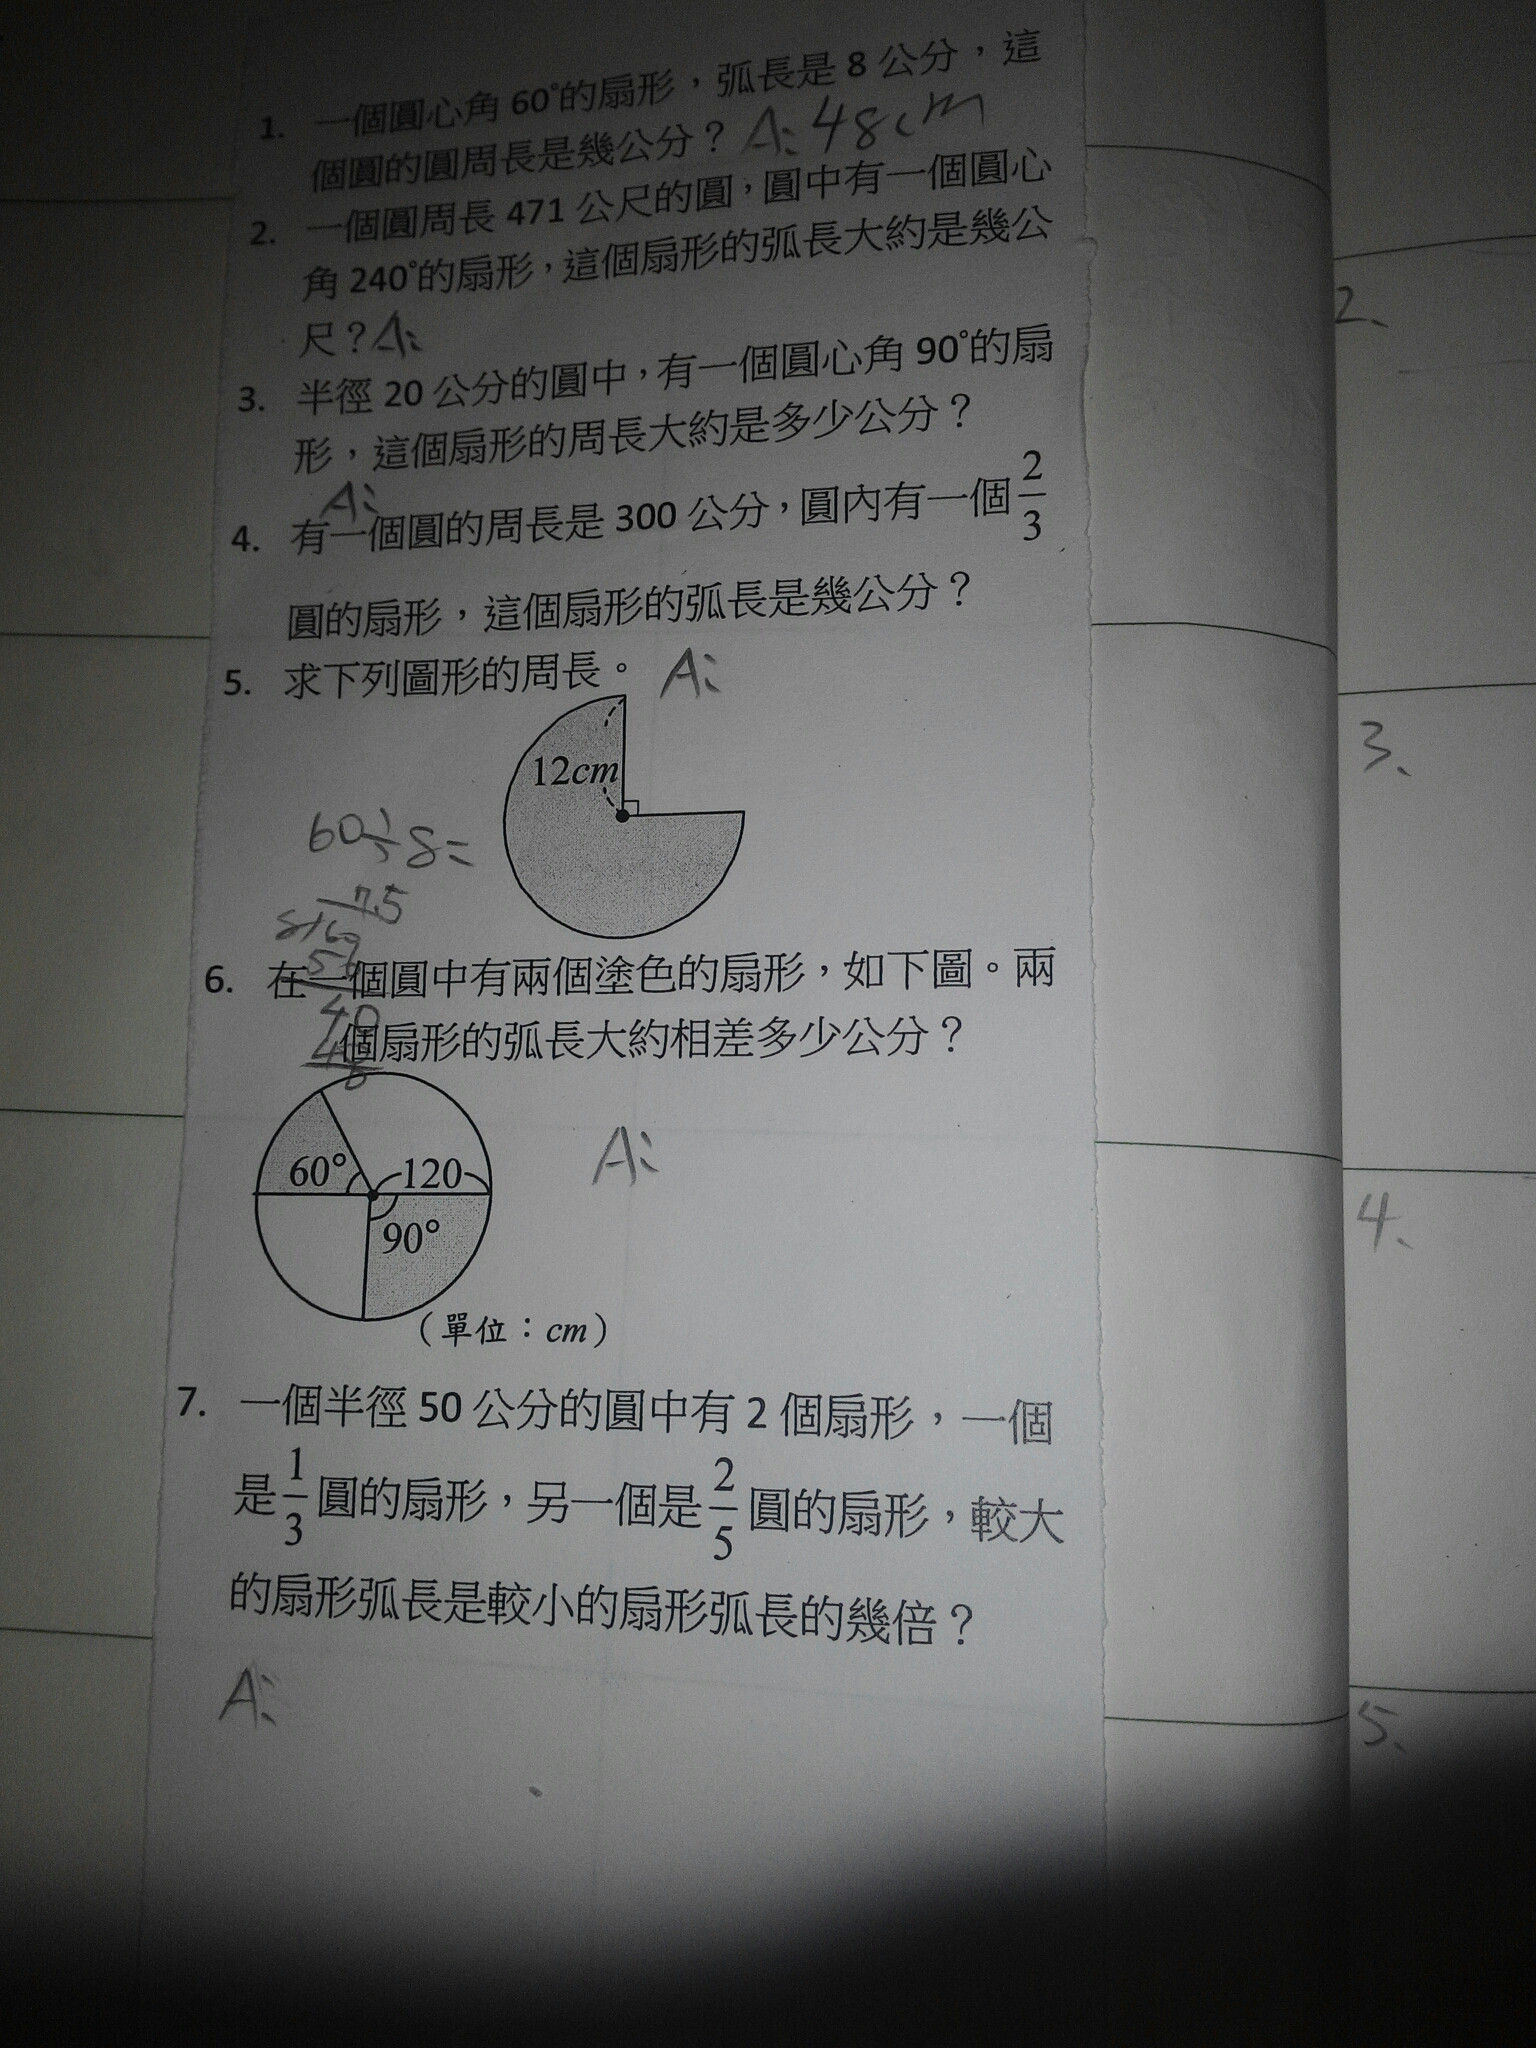 1. 一個圓心角60°的扇形，弧長是8公分，這
個圓的圓周長是幾公分？ A: 48cm
2. 一個圓周長471公尺的圓，圓中有一個圓心
角240°的扇形，這個扇形的弧長大約是幾公
尺？A:
3. 半徑20公分的圓中，有一個圓心角90°的扇
形，這個扇形的周長大約是多少公分？
A:
4. 有一個圓的周長是300公分，圓內有一個2/3
圓的扇形，這個扇形的弧長是幾公分？
5. 求下列圖形的周長。 A:
12cm
60÷8=
7.5
8 60
56
40
40
0
6. 在一個圓中有兩個塗色的扇形，如下圖。兩
個扇形的弧長大約相差多少公分？
60° 120
90°
A:
（單位：cm）
7. 一個半徑50公分的圓中有2個扇形，一個
是1/3圓的扇形，另一個是2/5圓的扇形，較大
的扇形弧長是較小的扇形弧長的幾倍？
A:
2、
3、
4、
5、